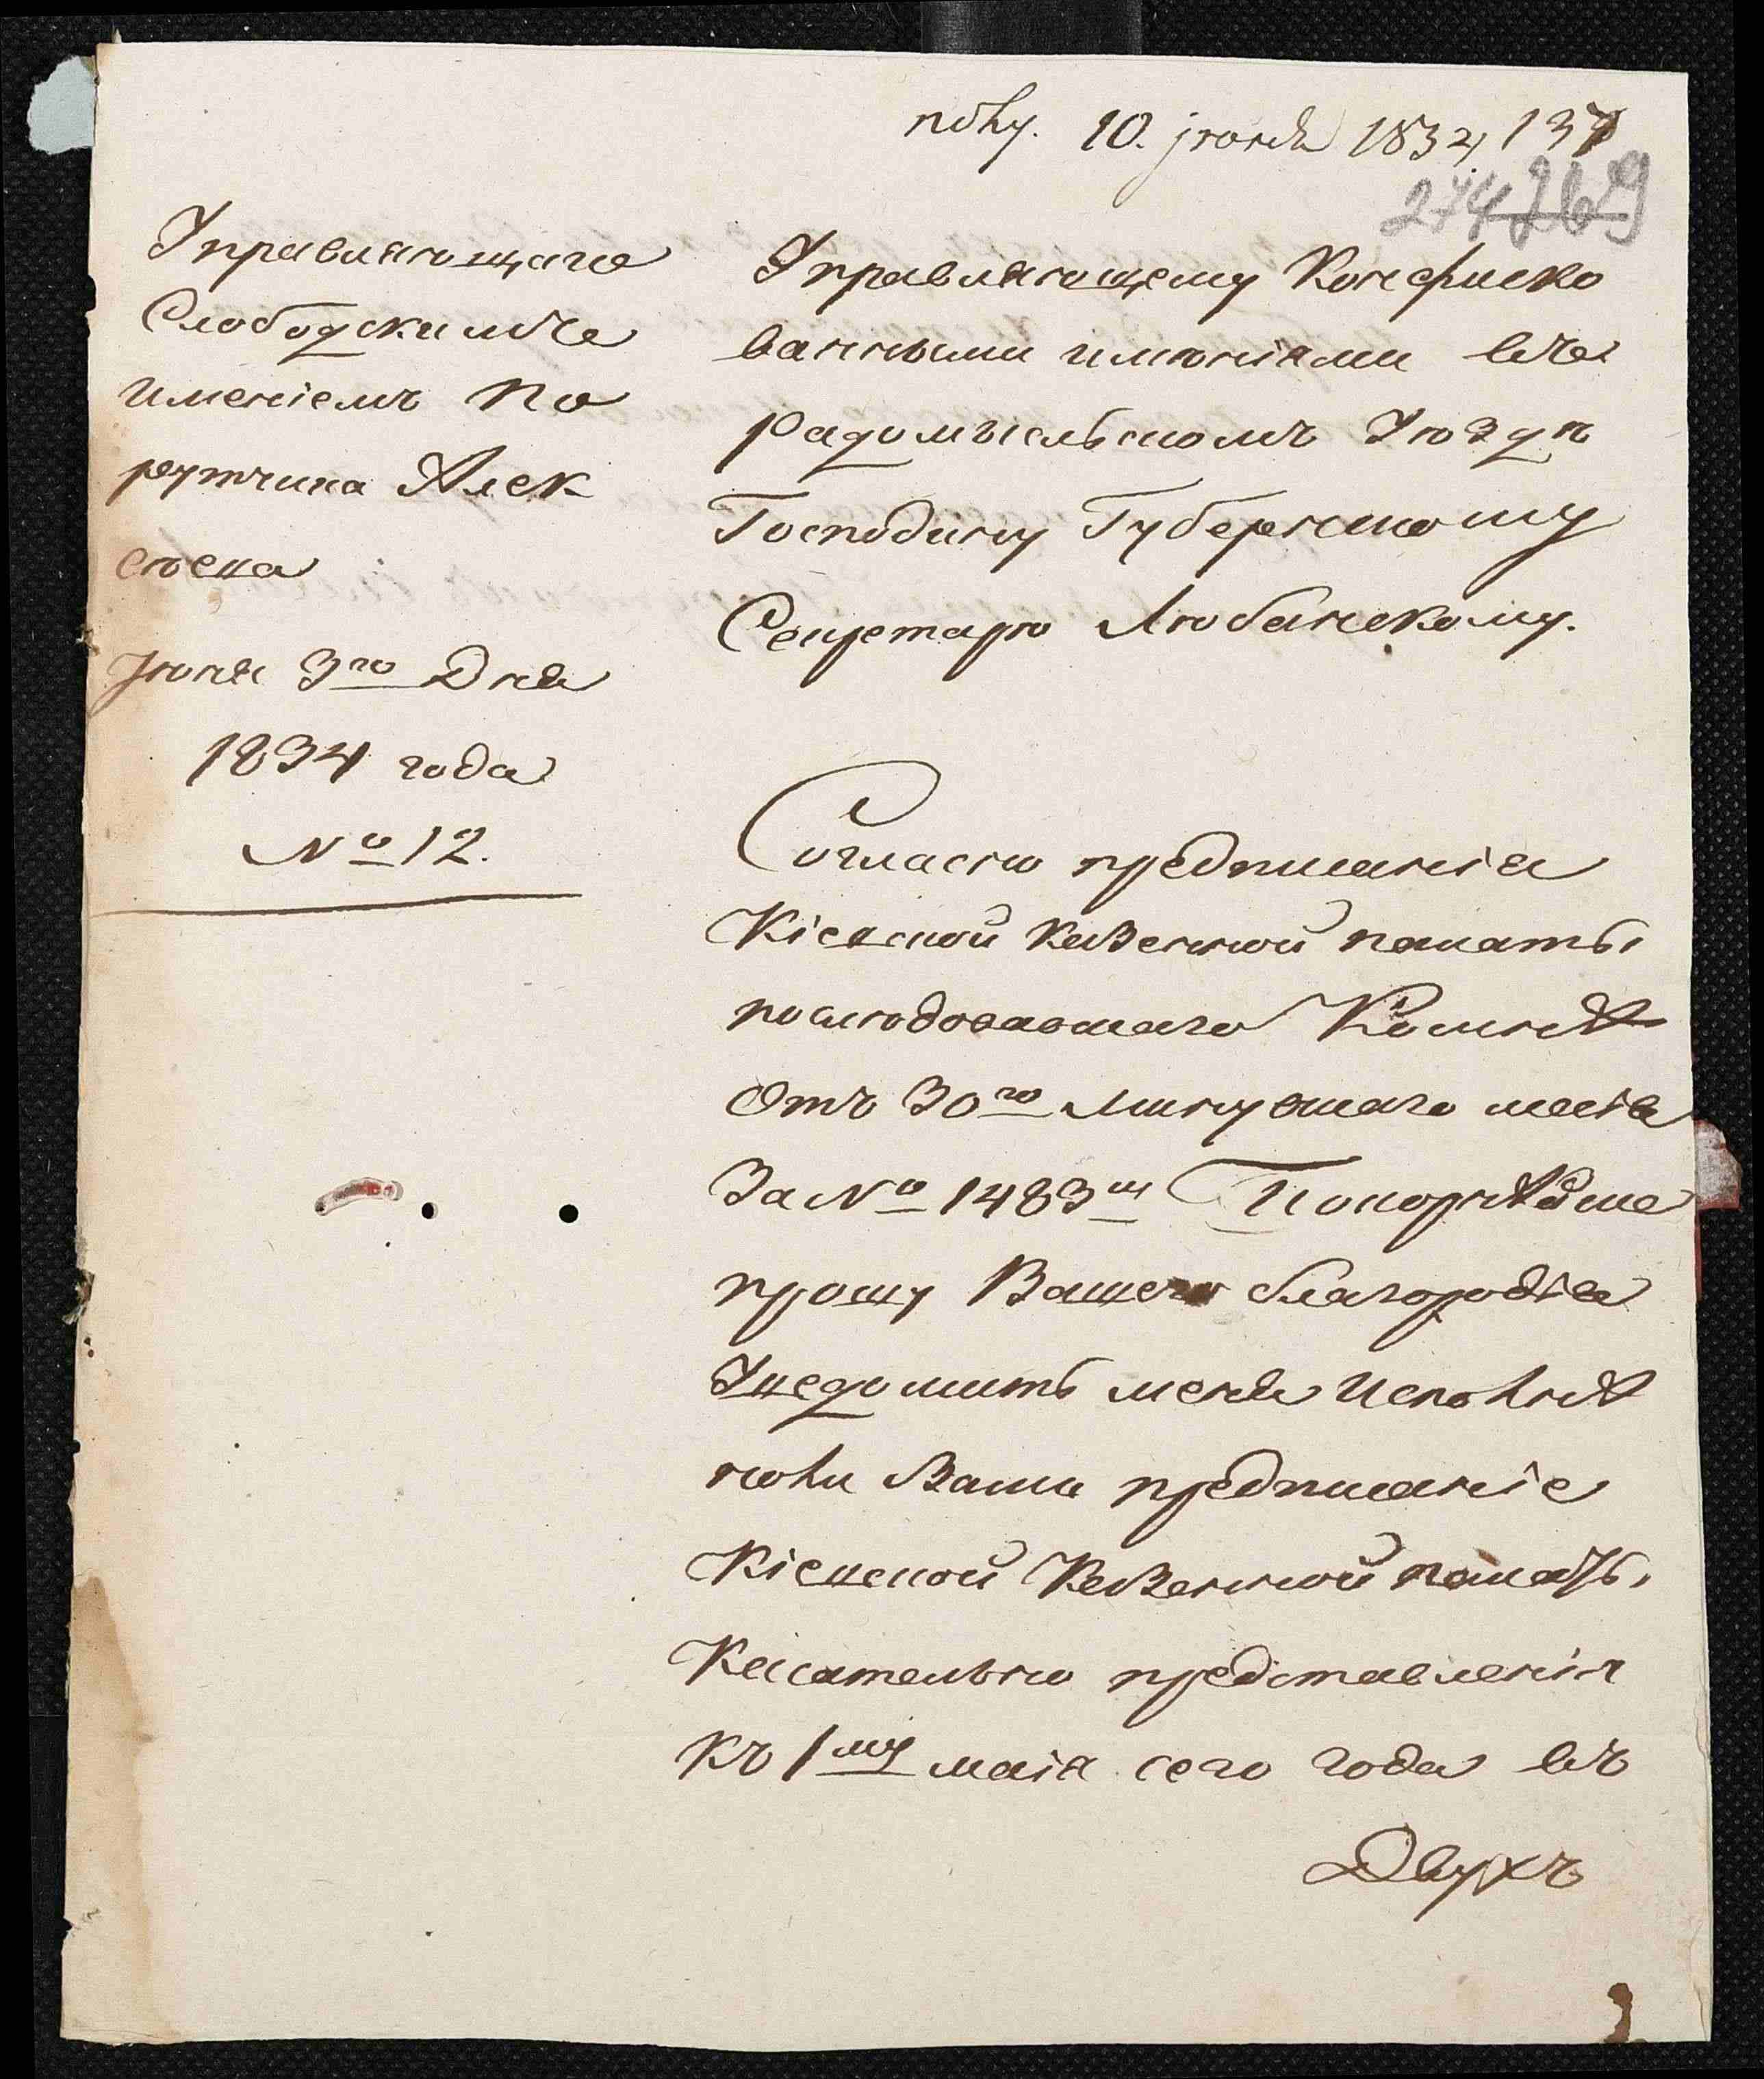 полу. 10. іюня 1834 137
274 269
Управляющаго
Слободскимъ
имениемъ По
рутчика Алек
сѣева
Июня 3го Дня
1834 года
№ 12.
Управляющему Конфиско
ванными имѣніями въ
Радомысльскомъ Уѣздѣ
Господину Губернскому
Секретарю Любанскому.
Согласно предписанія
Кіевской Казенной палаты
послѣдовавшаго Комнѣ
Отъ 30го Минувшаго маія
За № 1483м Покорнѣйше
прошу Вашего благородія
Уведомить меня Исполнѣ
ноли Вами предписаніе
Кіевской Казенной палаты,
Касательно представленія
Къ 1му маія сего года въ
Двухъ